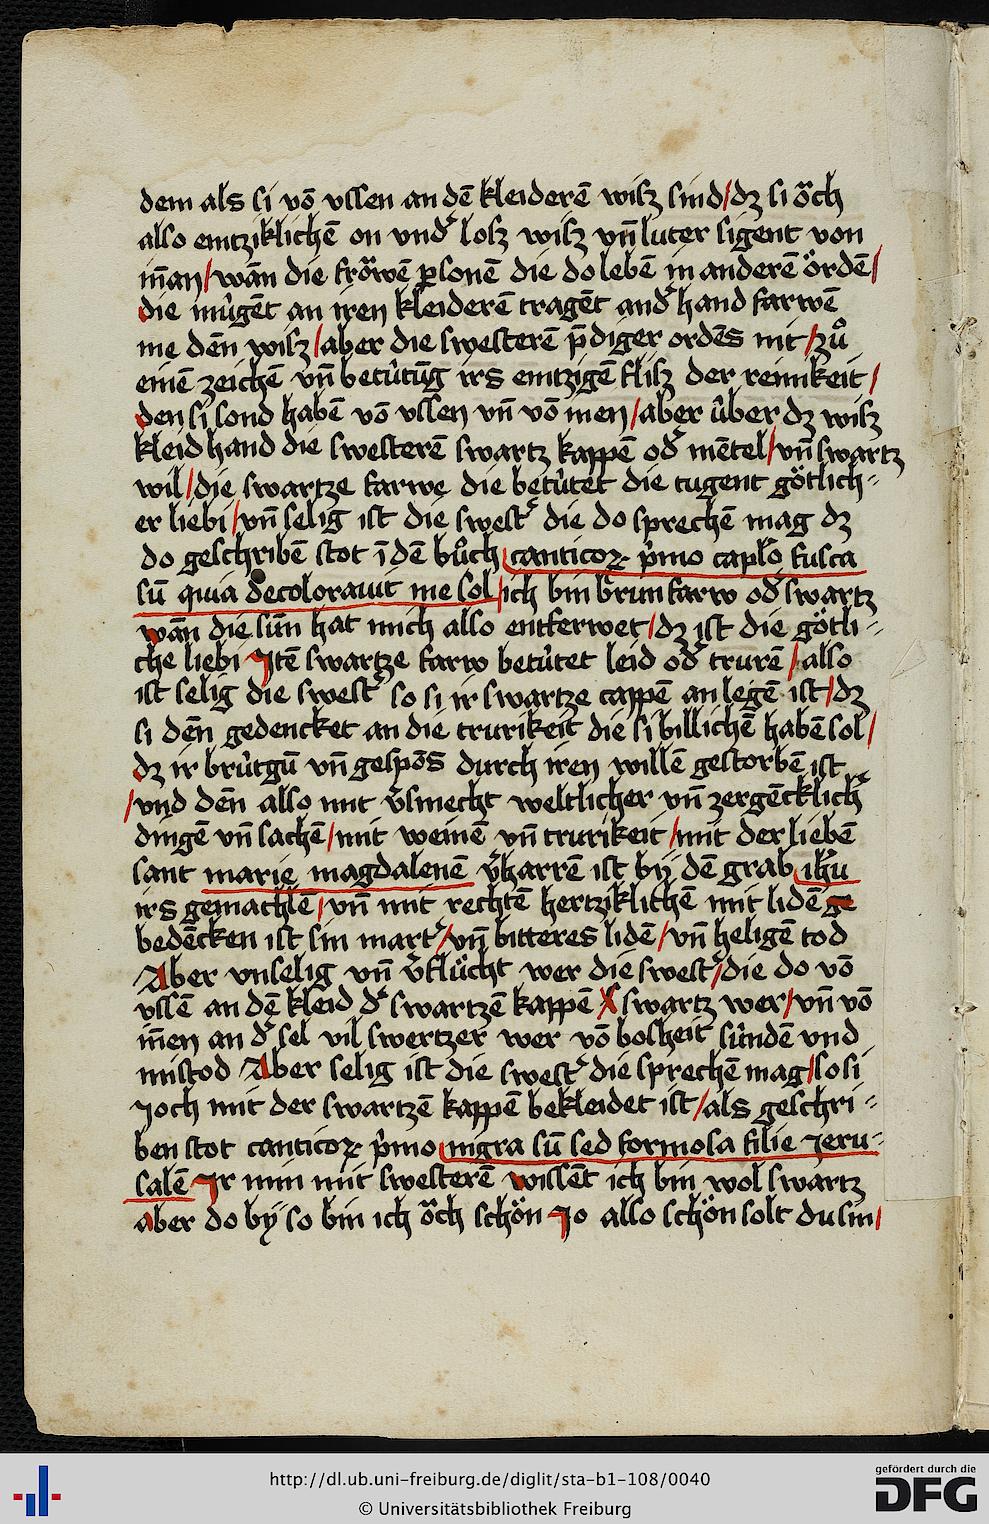 dem als si vō vssen an dē kleiderē wisz sind / dz si ŏch
also emtziklichē on vnd' losz wisz vn̄ luter sigent von
īnan / wān die frŏwē psonē die do lebē in anderē ördē /
die mu̇gēt an iren kleiderē tragēt and' hand farwē
me dēn wisz / aber die swesterē p̄diger ordēs nit / zů
einē zeichē vn̄ betu̇tūg irs emtzigē flisz der reinikeit /
den si sond habē vō vssen vn̄ vō inen / aber u̇ber dz wisz
kleid hand die swesterē swartz kappē od' mētel / vn̄ swartz
wil / die swartze farwe die betu̇tet die tugent götlich-
er liebi / vn̄ selig ist die swest' die do sprechē mag dz
do geschribē stot ī dē bůch canticoꝝ p'mo caplo fusca
sū quia decolorauit me sol / ich bin brun farw od' swartz
wān die sūn hat mich also entferwet / dz ist die götli-
che liebi Itē swartze farw betu̇tet leid od' trurē / also
ist selig die swest' so si ir swartze cappē an legē ist / dz
si dēn gedencket an die trurikeit die si billichē habē sol /
dz ir bru̇tgū vn̄ gespōs durch iren willē gestorbē ist
/ vnd dēn also mit v'smecht weltlicher vn̄ zergēcklich'
dingē vn̄ sachē / mit weinē vn̄ trurikeit / mit der liebē
sant marie magdalenē v'harrē ist bij dē grab ihū
irs gemachlē / vn̄ mit rechtē hertziklichē mit lidē ge
bedēcken ist sin mart' / vn̄ bitteres lidē / vn̄ heligē tod
Aber vnselig vn̄ v'flůcht wer die swest' / die do vō
vssē an dē kleid d' swartzē kappē swartz wer / vn̄ vō
īnen an d' sel vil swertzer wer vō bosheit su̇ndē vnd
mistod Aber selig ist die swest' die sprechē mag / so si
joch mit der swartzē kappē bekleidet ist / als geschri-
ben stot canticoꝝ p'mo nigra sū sed formosa filie Jeru-
salē Ir min mit swesterē wissēt ich bin wol swartz
aber do bij so bin ich ŏch schön Jo also schön solt du sin /
http://dl.ub.uni-freiburg.de/diglit/sta-b1-108/0040
© Universitätsbibliothek Freiburg
gefördert durch die
DFG